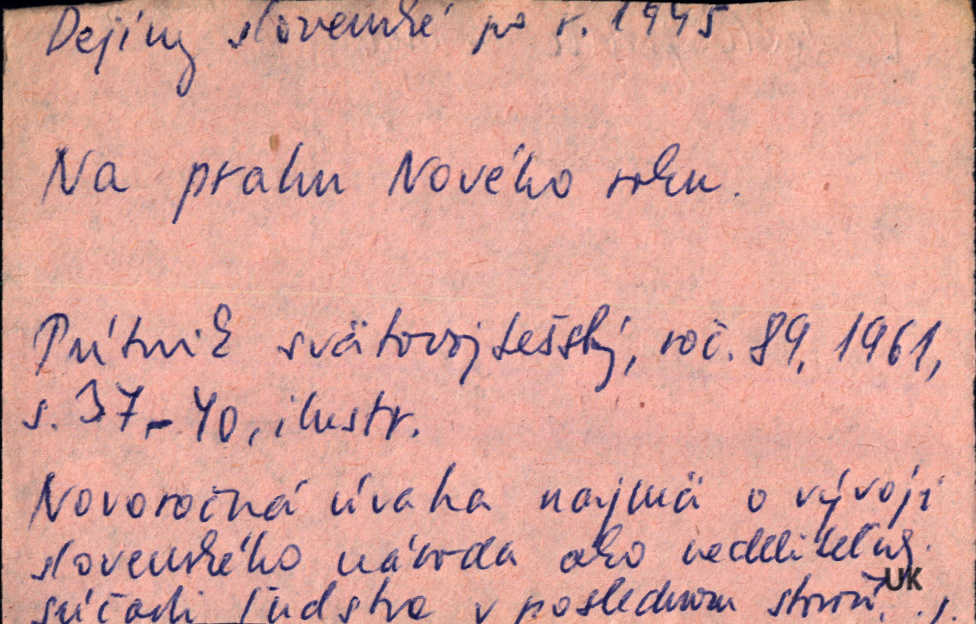 Dejiny slovenské po r. 1945
Na prahu Nového roku.
Pútnik svätovojtešský, roč. 89, 1961,
s. 37-40, ilustr.
Novoročná úvaha najmä o vývoji
slovenského národa ako nedeliteľnej
súčasti ľudstva v poslednom
UK